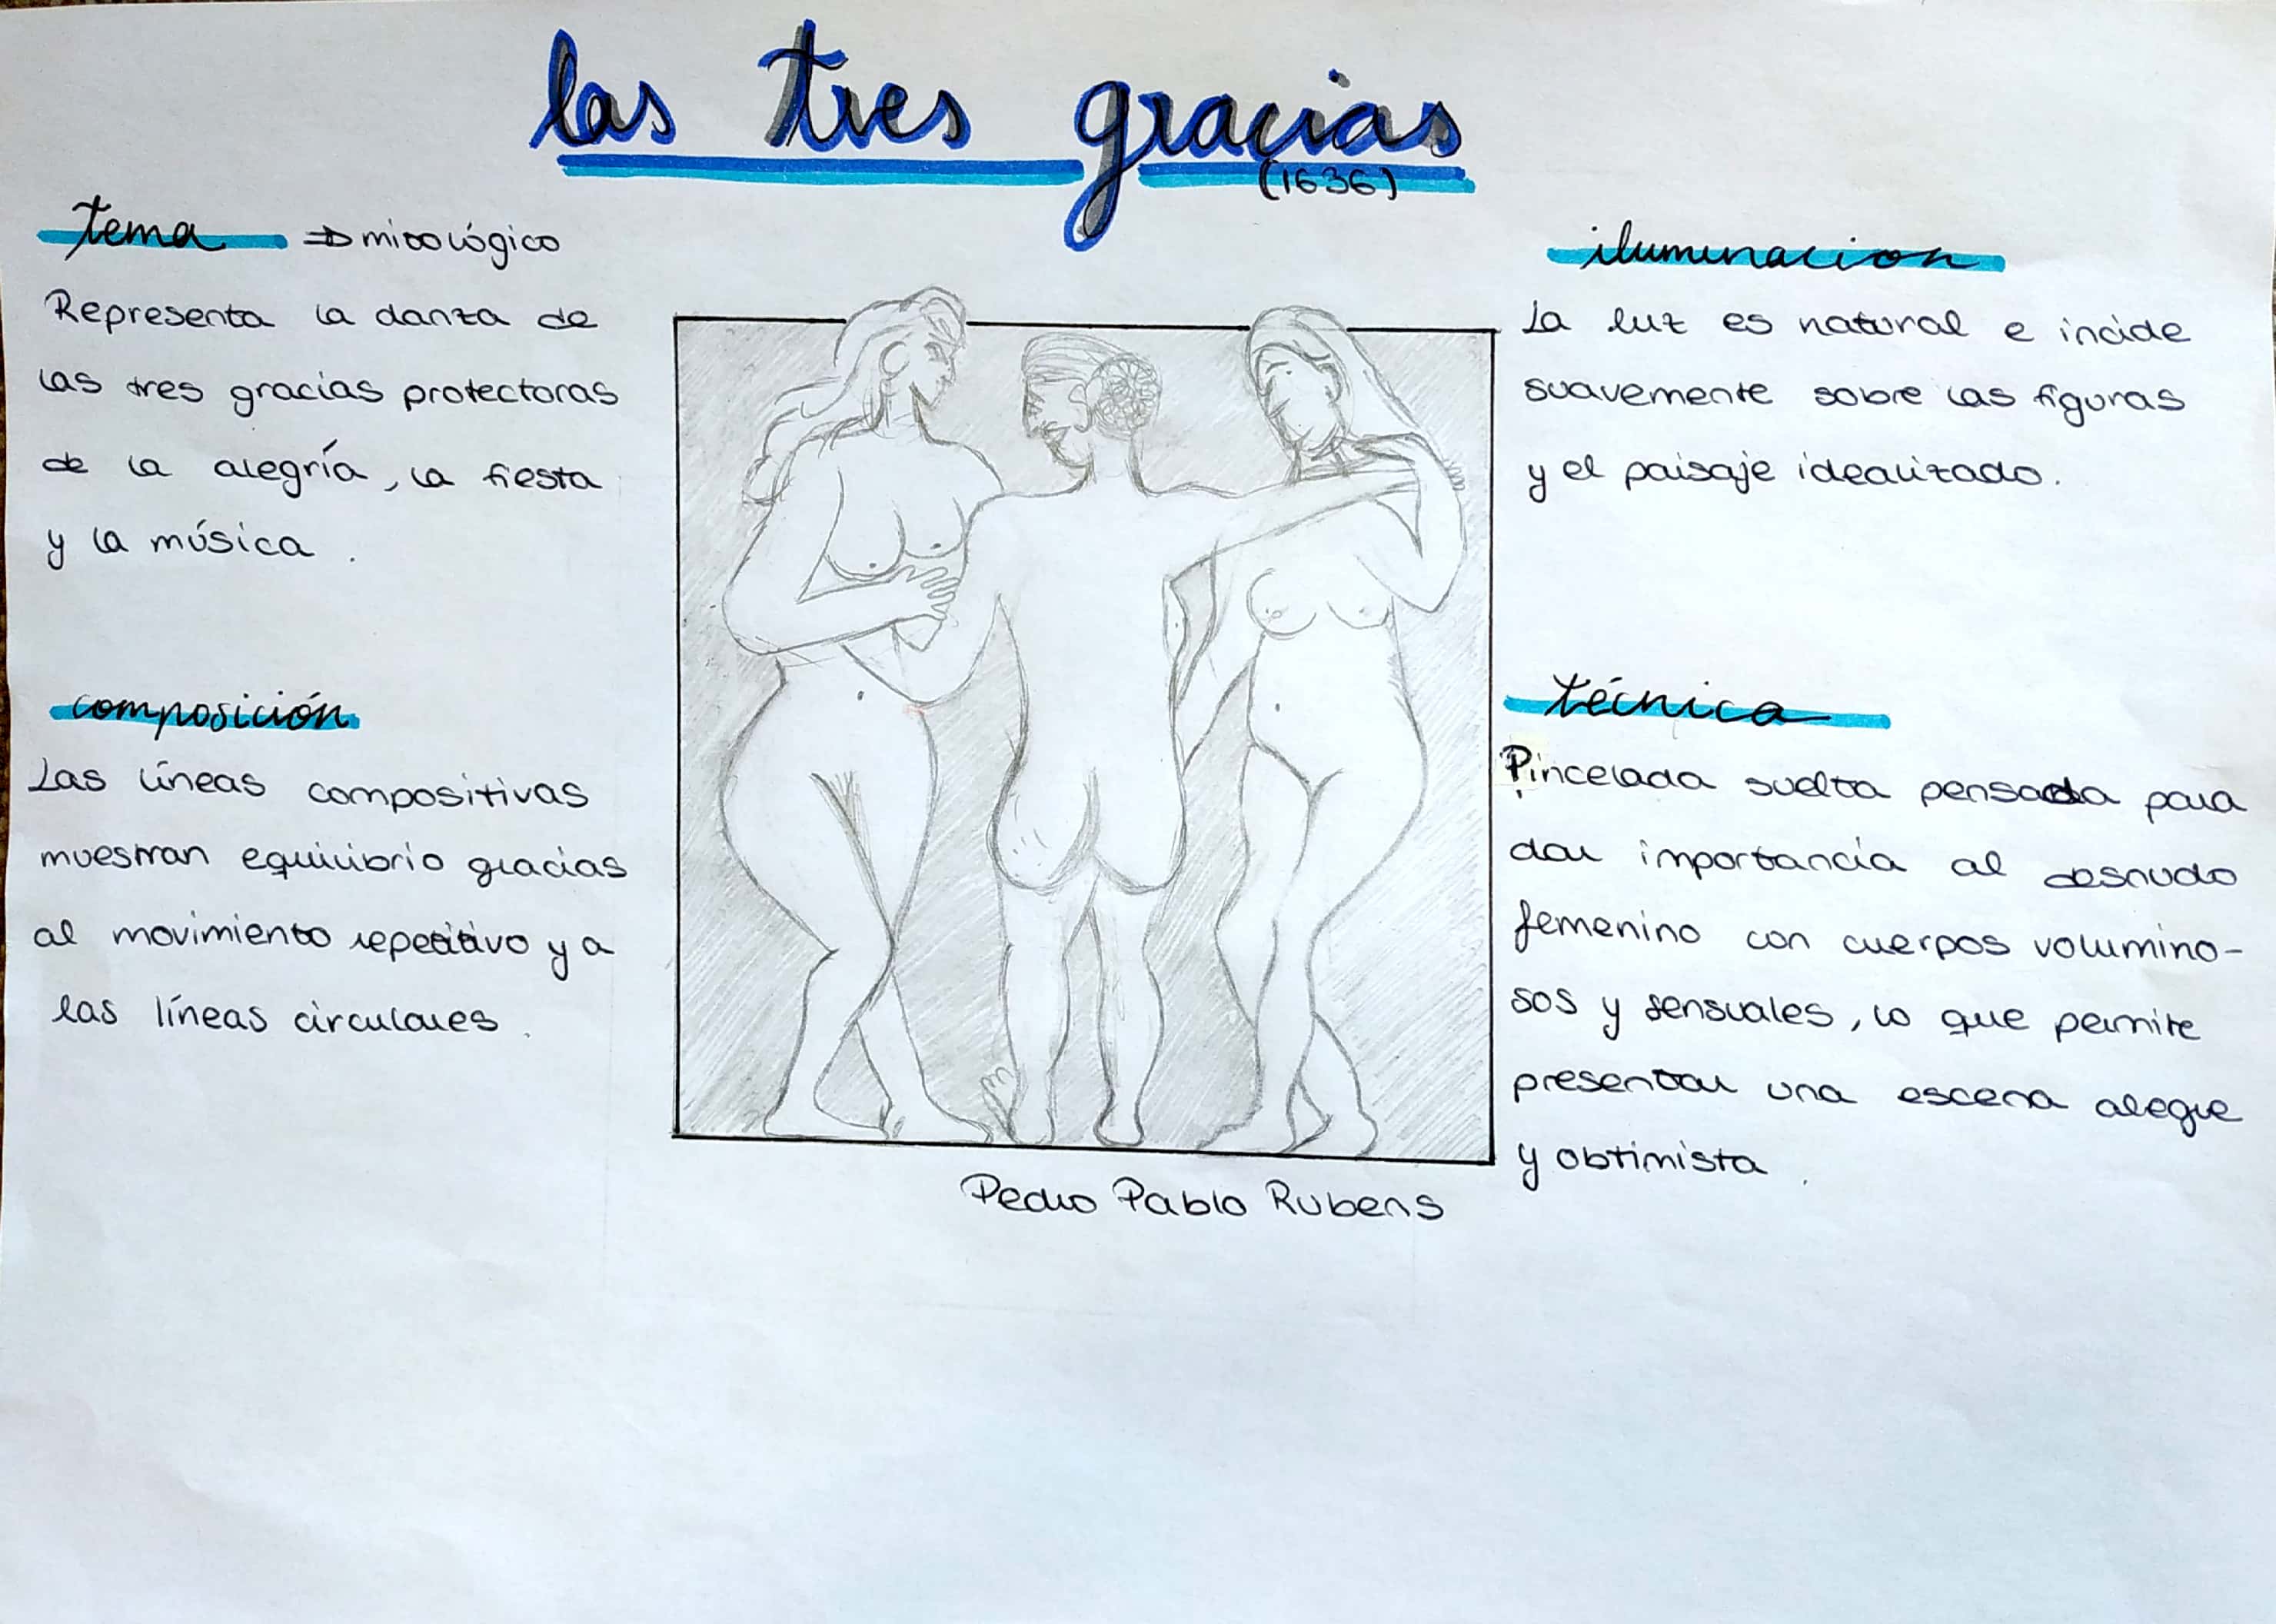 las tres gracias
(1636)
tema ⇒ mitológico
Representa la danza de
las tres gracias protectoras
de la alegría, la fiesta
y la música.
composición
Las líneas compositivas
muestran equilibrio gracias
al movimiento repetitivo y a
las líneas circulares.
iluminacion
La luz es natural e incide
suavemente sobre las figuras
y el paisaje idealizado.
técnica
Pincelada suelta pensada para
dar importancia al desnudo
femenino con cuerpos volumino-
sos y sensuales, lo que permite
presentar una escena alegre
y obtimista.
Pedro Pablo Rubens